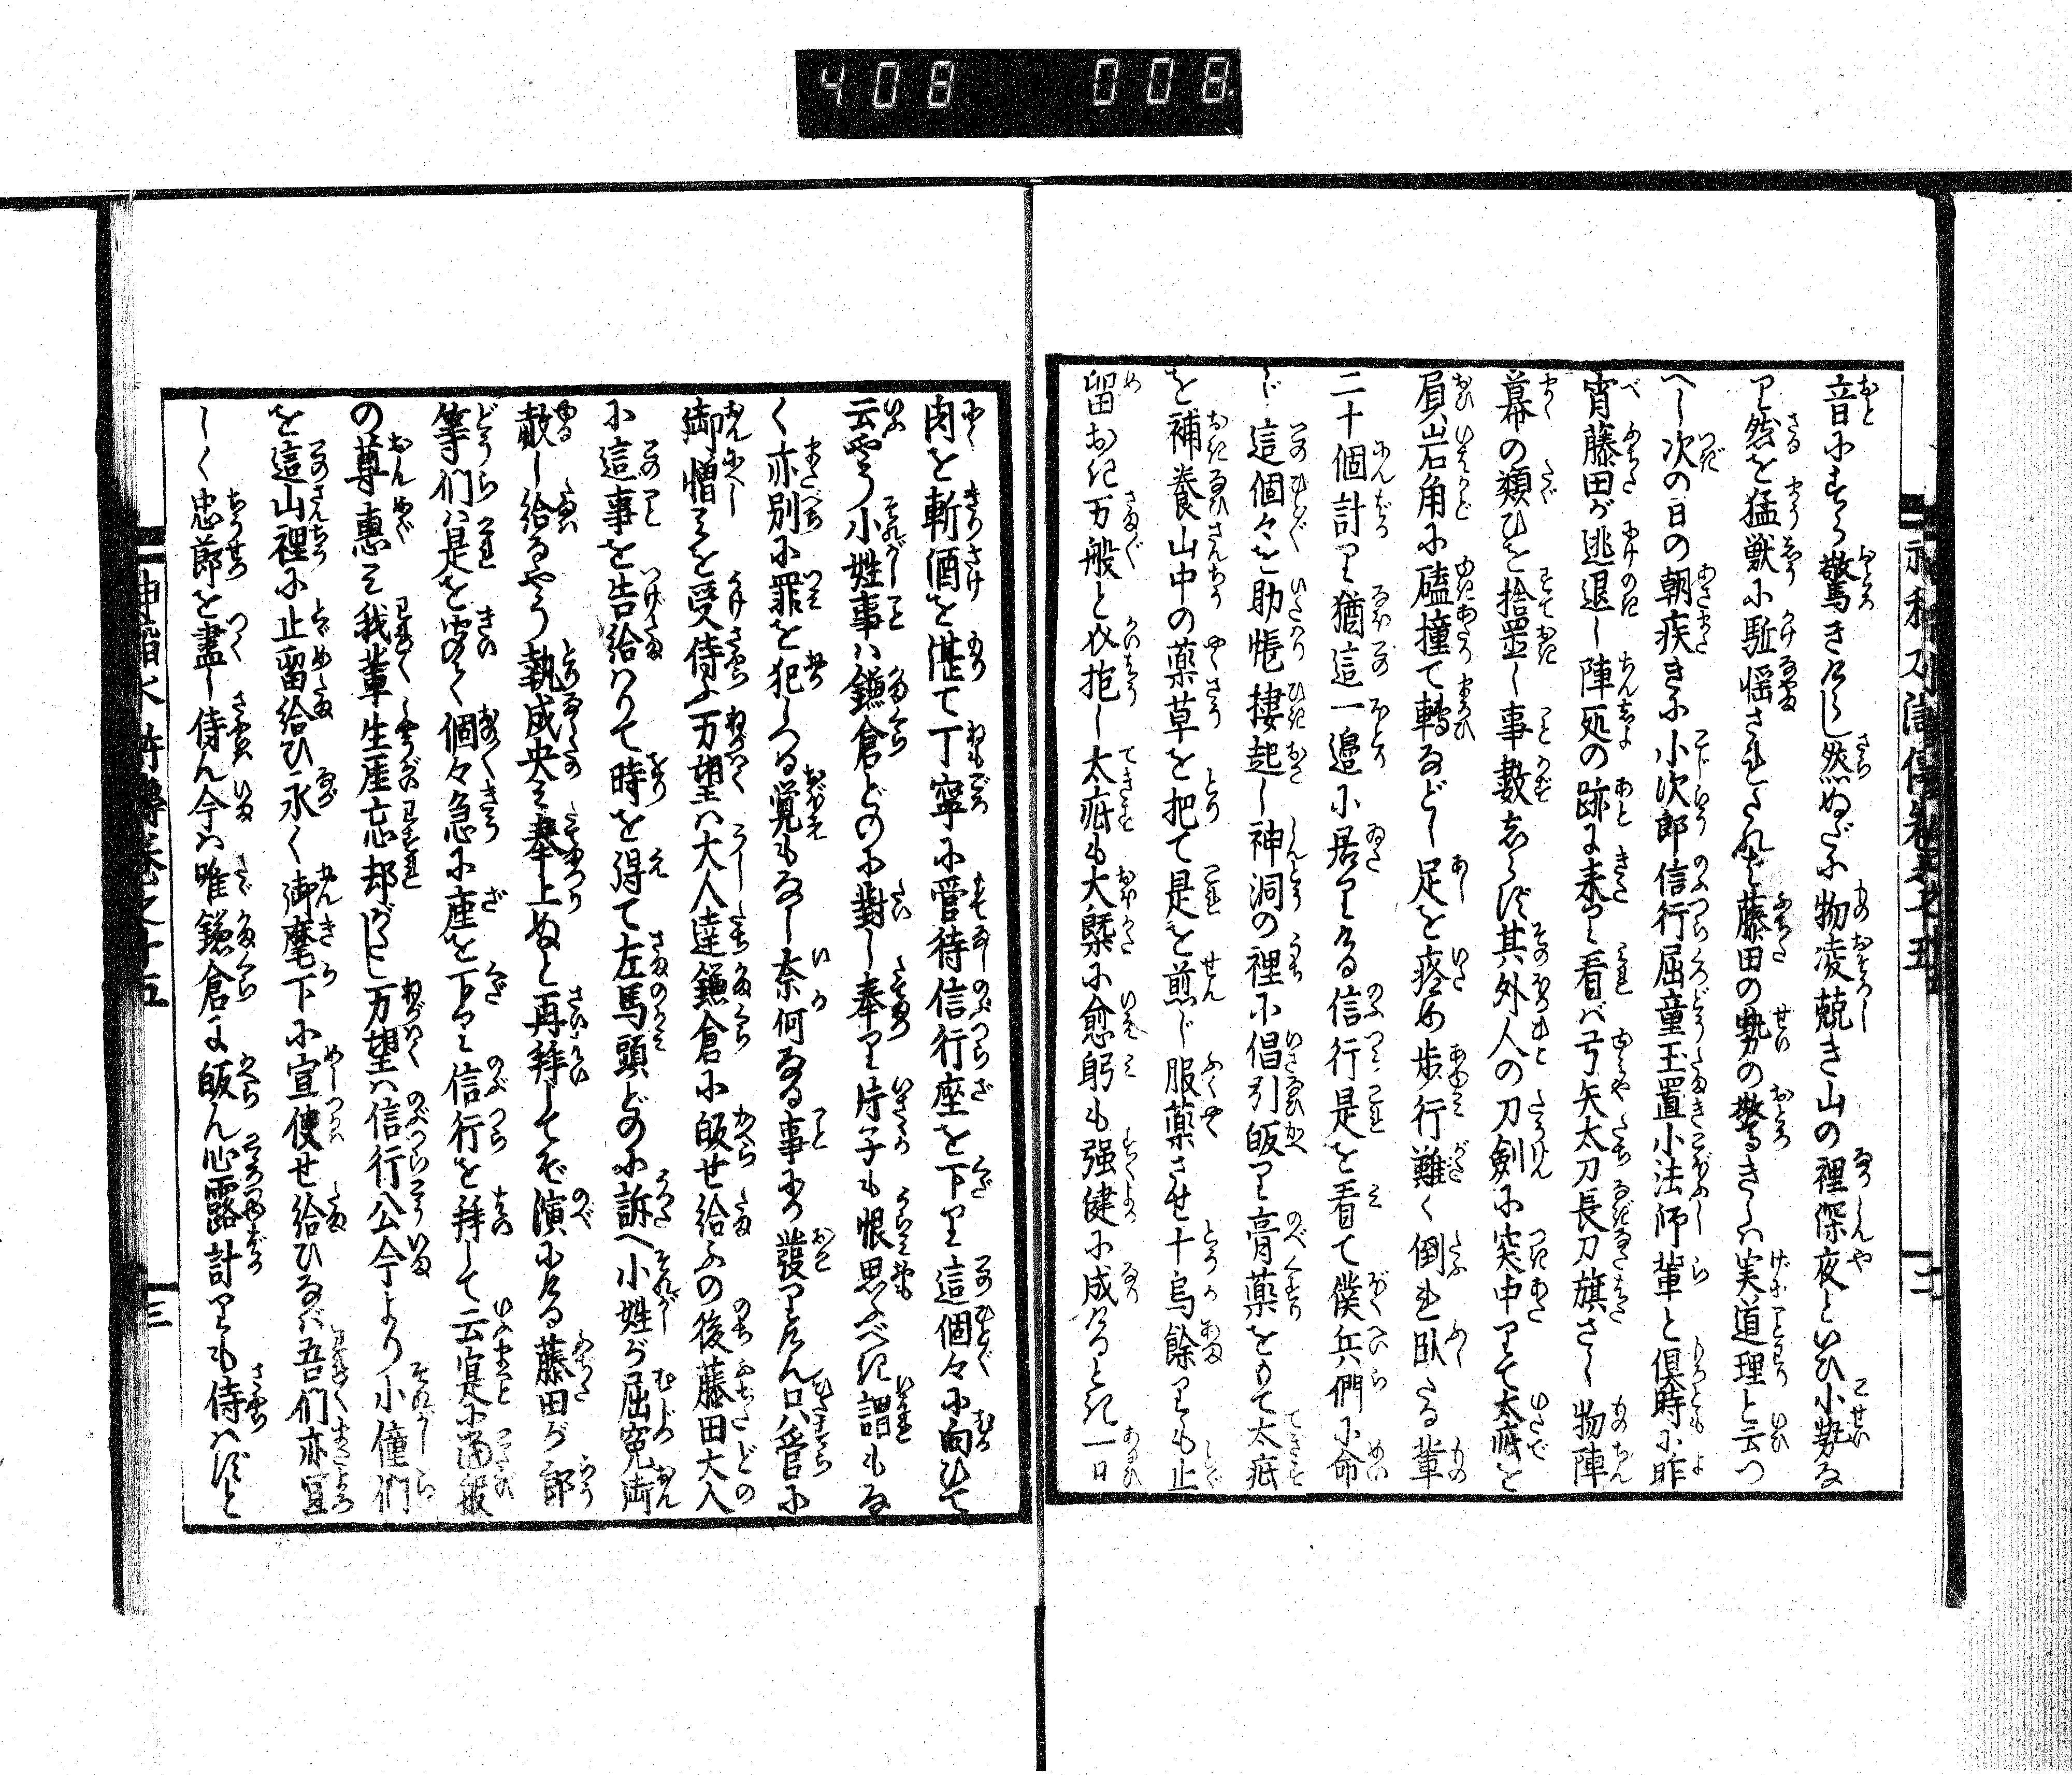 408 008
音にすら驚きけらし然ぬだに物凌兢き山の裡深夜といひ小勢な
り然を猛獣に駈悩されたれは藤田の勢の驚るきしは実道理と云つ
へし次の日の朝疾きに小次郎信行屈童玉置小法师輩と倶時に昨
宵藤田が逃退し陣処の跡に来り看バ弓矢太刀長刀旗さし物陣
幕の類ひを捨置し事数しらず其外人の刀劍に突中りて太疵を
屓岩角に磕撞て轉などし足を疼め歩行難く倒れ臥たる輩
二十個計り猶這一邉に居りける信行是を看て僕兵們に命
じ這個々を助𢮦捿起し神洞の裡に倡引皈り膏薬をもて太疵
を補養山中の薬草を把て是を煎じ服薬させ十烏餘りも止
留おき万般と仪抱し太疵も大槩に愈躬も强健に成けるとき一日
肉を斬酒を湛て丁寧に管待信行座を下り這個々に向ひて
云やう小姓事は鎌倉どのに對し奉り片子も恨思ふべき謂もな
く亦別に罪を犯しつる覚もなし奈何なる事より發りけん只管に
御憎みを受侍ふ万望は大人達鎌倉に皈せ給ふの後藤田大人
に這事を告給はりて時を得て左馬頭どのに訴へ小姓が屈寃両
赦し給るやう執成央み奉上ぬと再拜してぞ演にける藤田が郎
等們は是を聞て個々急に座を下り信行を拜して云寔に這般
の尊惠み我輩生涯忘却がたし万望は信行公今より小僮們
を這山裡に止畄給ひ永く御麾下に宣使せ給ひなバ吾们亦宜
しく忠節を盡し侍ん今は唯鎌倉に皈ん心露計りも侍はずと
三